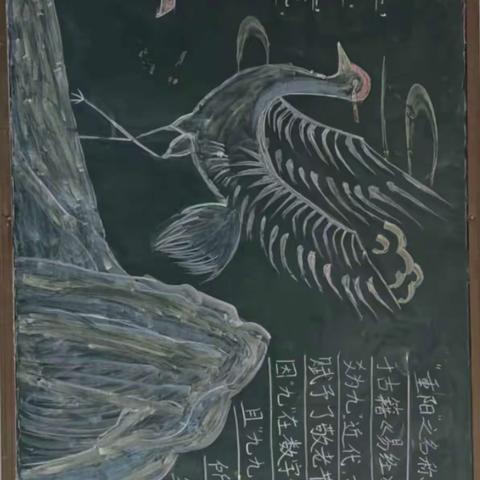 "重阳"之名称
于古籍《易经
爻为九。近代
赋予了敬老
因"九"在数字
且"九九